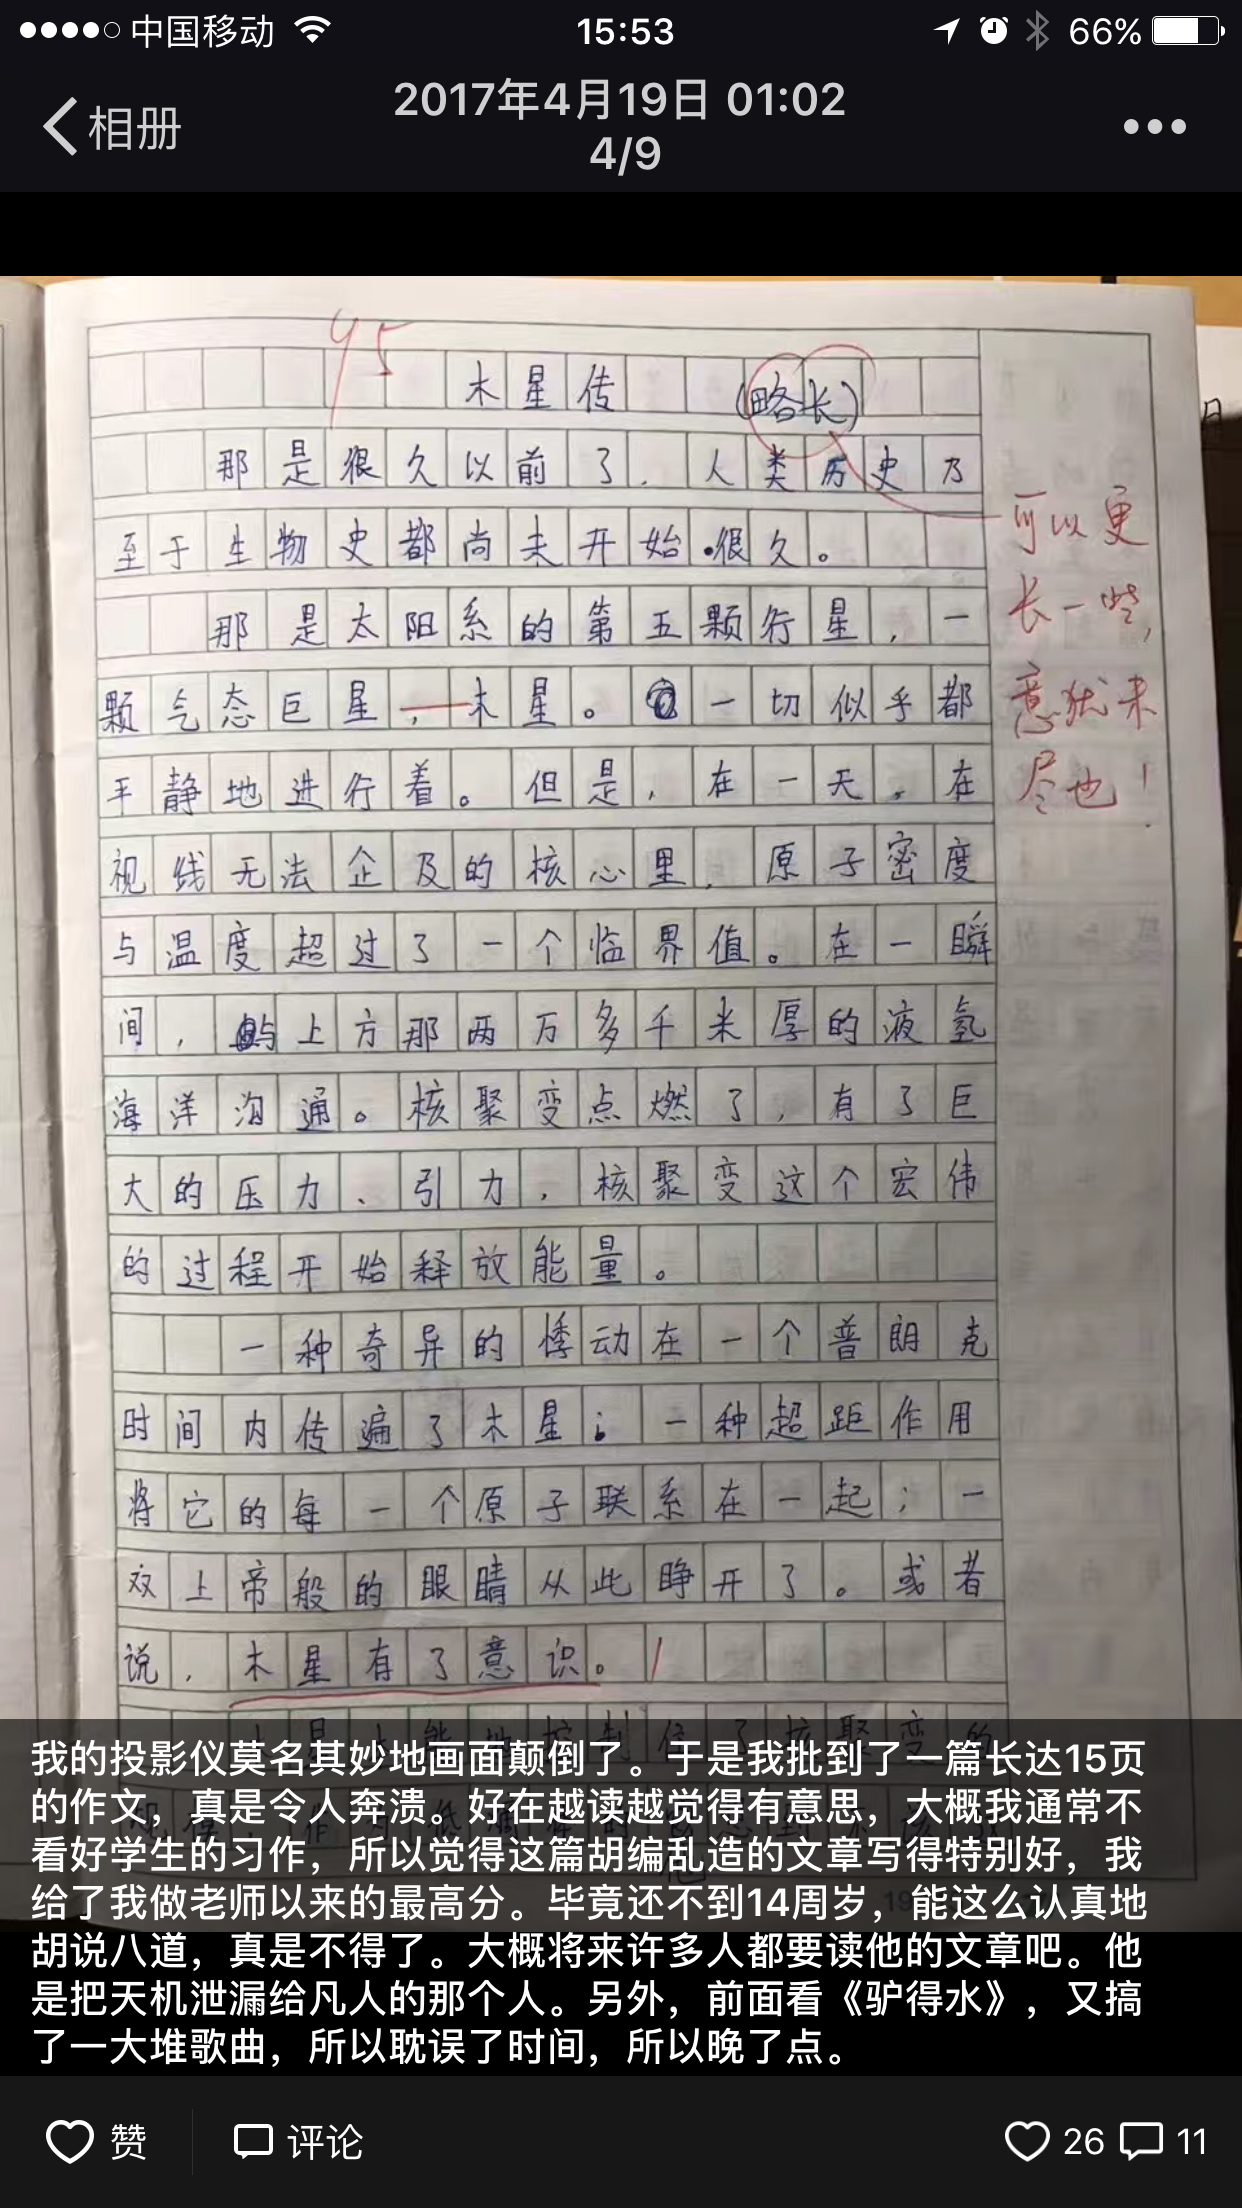 中国移动
15:53
66%
相册
2017年4月19日 01:02
4/9
95
木星传 (略长)
那是很久以前了，人类历史乃
至于生物史都尚未开始很久。
那是太阳系的第五颗行星，一
颗气态巨星，木星。一切似乎都
平静地进行着。但是，在一天，在
视线无法企及的核心里，原子密度
与温度超过了一个临界值。在一瞬
间，与上方那两万多千米厚的液氢
海洋沟通。核聚变点燃了，有了巨
大的压力、引力，核聚变这个宏伟
的过程开始释放能量。
一种奇异的悸动在一个普朗克
时间内传遍了木星；一种超距作用
将它的每一个原子联系在一起；一
双上帝般的眼睛从此睁开了。或者
说，木星有了意识。
可以更
长一些，
意犹未
尽也！
我的投影仪莫名其妙地画面颠倒了。于是我批到了一篇长达15页
的作文，真是令人奔溃。好在越读越觉得有意思，大概我通常不
看好学生的习作，所以觉得这篇胡编乱造的文章写得特别好，我
给了我做老师以来的最高分。毕竟还不到14周岁，能这么认真地
胡说八道，真是不得了。大概将来许多人都要读他的文章吧。他
是把天机泄漏给凡人的那个人。另外，前面看《驴得水》，又搞
了一大堆歌曲，所以耽误了时间，所以晚了点。
赞 评论 26 11